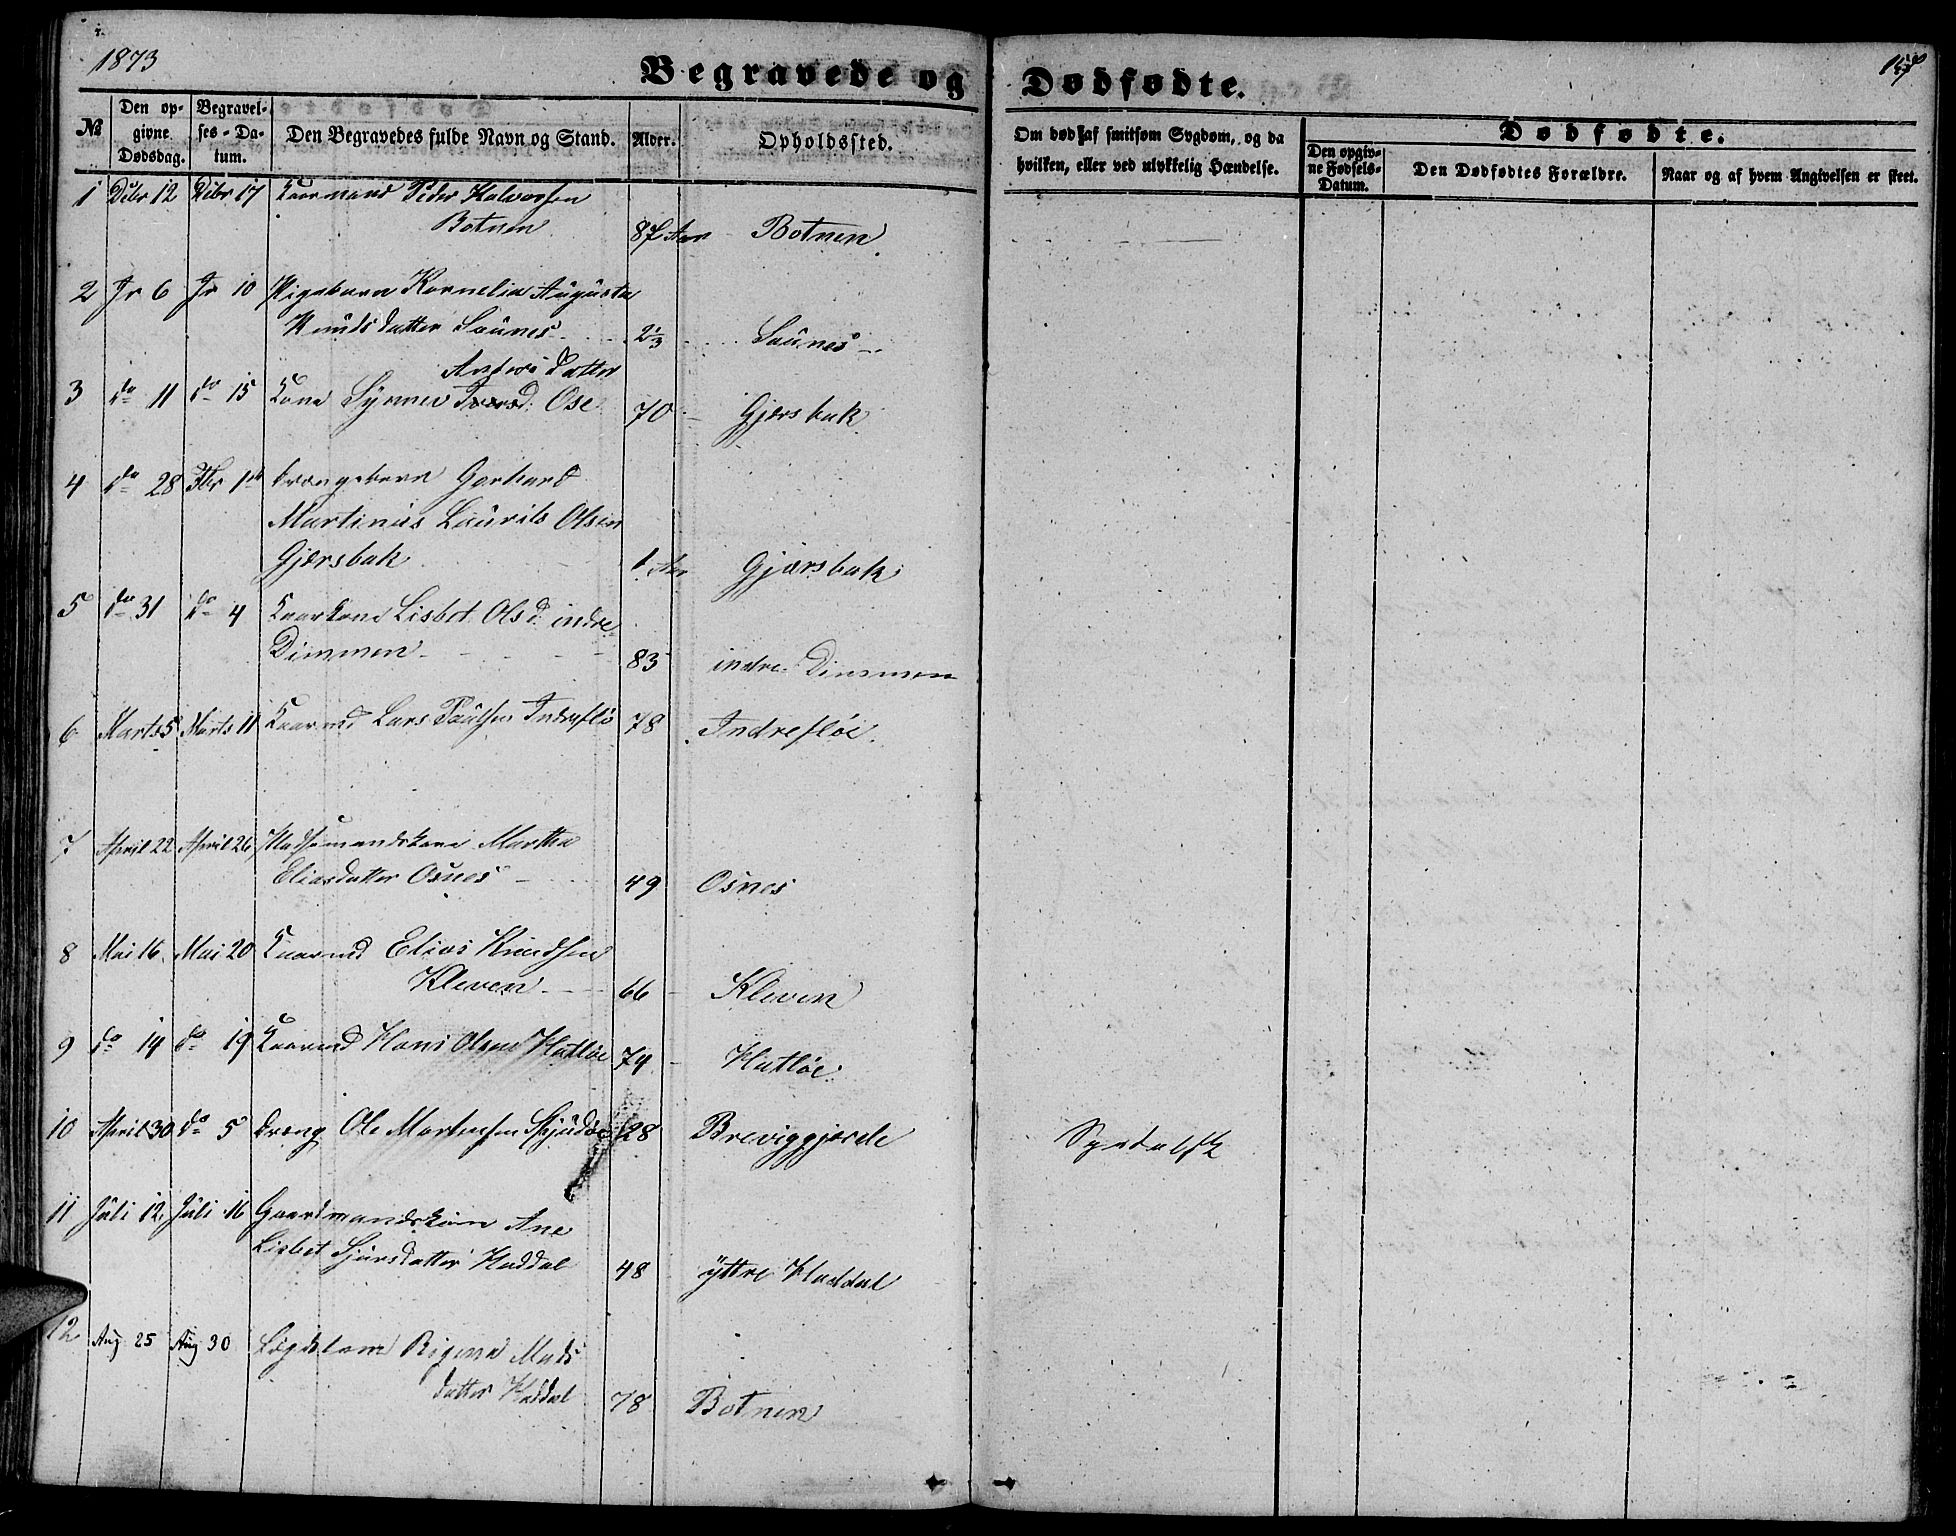 1873
Begravede og Dødfødte.
№
Den opgivne Dødsdag.
Begravelses-Datum.
Den Begravedes fulde Navn og Stand.
Alder.
Opholdssted.
Om død af smitsom Sygdom, og da hvilken, eller ved ulykkelig Hændelse.
Dødfødte.
Den opgivne Fødsels-Datum.
Den Dødfødtes Forældre.
Naar og af hvem Angivelsen er skeet.
1 Dcbr 12 Dcbr 17 Kaarmand Peder Halvorsen
Botnen 87 Aar Botnen
2 Jr 6 Jr 10 Pigebarn Kornelia Augusta
Knudsdatter Saunes 2⅓ Saunes
Anders Datter
3 do 11 do 15 Kone Synnev Iversd. Ose 70 Gjærsbak
4 do 28 Fbr 1st Drængebarn Gerhard
Martinus Laurits Olsen
Gjærsbak 1 Aar Gjærsbak
5 do 31 do 4 Kaarkone Lisbet Olsd. indre
Dimmen 83 indre Dimmen
6 Marts 5 Marts 11 Kaarmd Lars Paulsen Indrefløe 78 Indrefløe
7 April 22 April 26 Pladsemandskone Martha
Eliasdatter Osnes 49 Osnes
8 Mai 16 Mai 20 Kaarmd Elias Knudsen
Kleven 66 Kleven
9 do 14 do 19 Kaarmd Hans Olsen Hatløe 74 Hatløe
10 April 30 do 5 Dreng Ole Martensen 28 Breviggjerde Spedalsk
11 Juli 12 Juli 16 Gaardmandskone Ane
Lisbet Sjursdatter Haddal 48 yttre Haddal
12 Aug 25 Aug 30 Lægdslem Rigena Mads
datter Haddal 78 Botnen